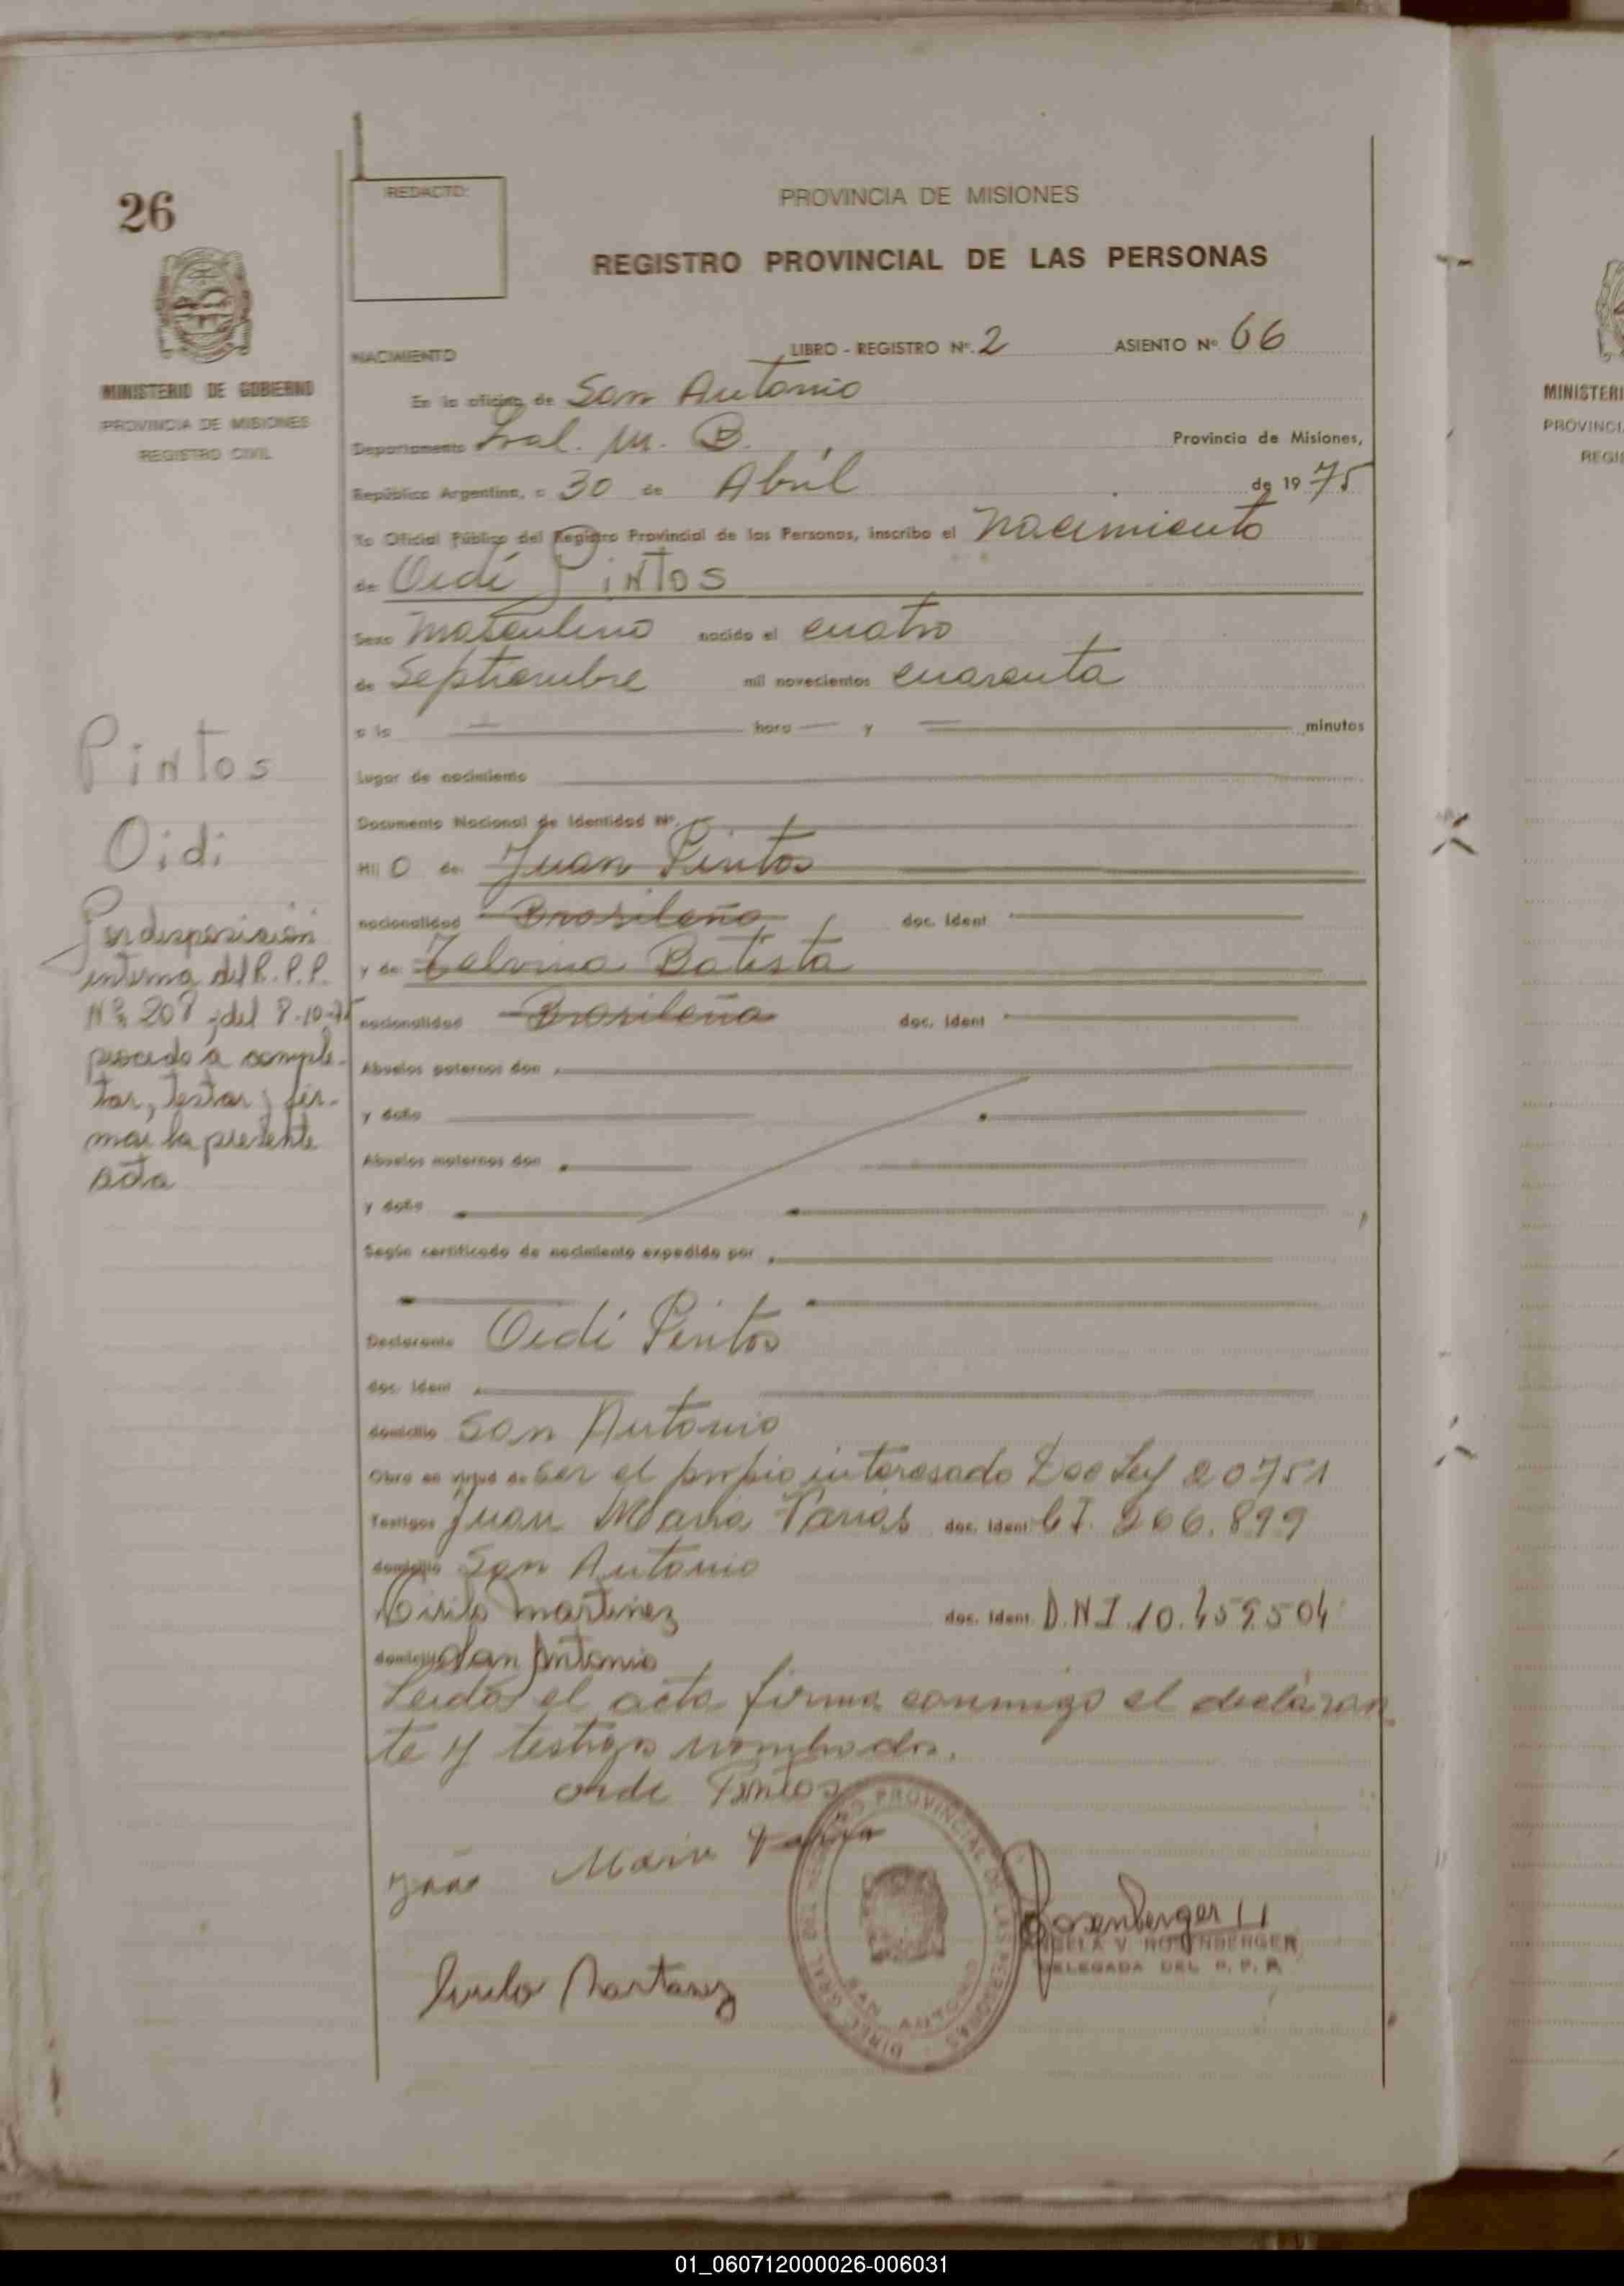 26
REDACTO:
PROVINCIA DE MISIONES
REGISTRO PROVINCIAL DE LAS PERSONAS
MINISTERIO DE GOBIERNO
PROVINCIA DE MISIONES
REGISTRO CIVIL
NACIMIENTO
LIBRO - REGISTRO Nº. 2 ASIENTO Nº 66
En la oficina de San Antonio
Departamento Gral. M. B. Provincia de Misiones,
República Argentina, a 30 de Abril de 1975
Yo Oficial Público del Registro Provincial de las Personas, inscribo el Nacimiento
de Oidí Pintos
Sexo Masculino nacido el cuatro
de Septiembre mil novecientos cuarenta
a la hora y minutos
Lugar de nacimiento
Documento Nacional de Identidad Nº.
Hij O de Juan Pintos
nacionalidad Brasileño doc. ident
y de Batista
nacionalidad Brasileña doc. ident
Abuelos paternos don
y doña
Abuelos maternos don
y doña
Según certificado de nacimiento expedido por
Declarante Oidí Pintos
doc. ident
domicilio San Antonio
Obra en virtud de ser el propio interesado Ley 20751
Testigos Juan Maria Farias doc. ident C.I. 266.899
domicilio San Antonio
Cirilo Martinez doc. ident. D.N.I. 10.459.504
domicilio San Antonio
Leida el acta firma conmigo el declaran
te y testigos nombrados.
Pintos
Maria
Martinez
Rosenberger
ANGELA V. ROSENBERGER
DELEGADA DEL R. P. P.
DIREC. GRAL. DEL REGISTRO PROVINCIAL DE LAS PERSONAS
SAN ANTONIO
Pintos
Oidi
Por disposición
interna del R.P.P.
Nº 208 del 8-10-75
procedo a comple-
tar, testar y fir-
mar la presente
acta
MINISTERI
PROVINCI
REGIS
01_060712000026-006031